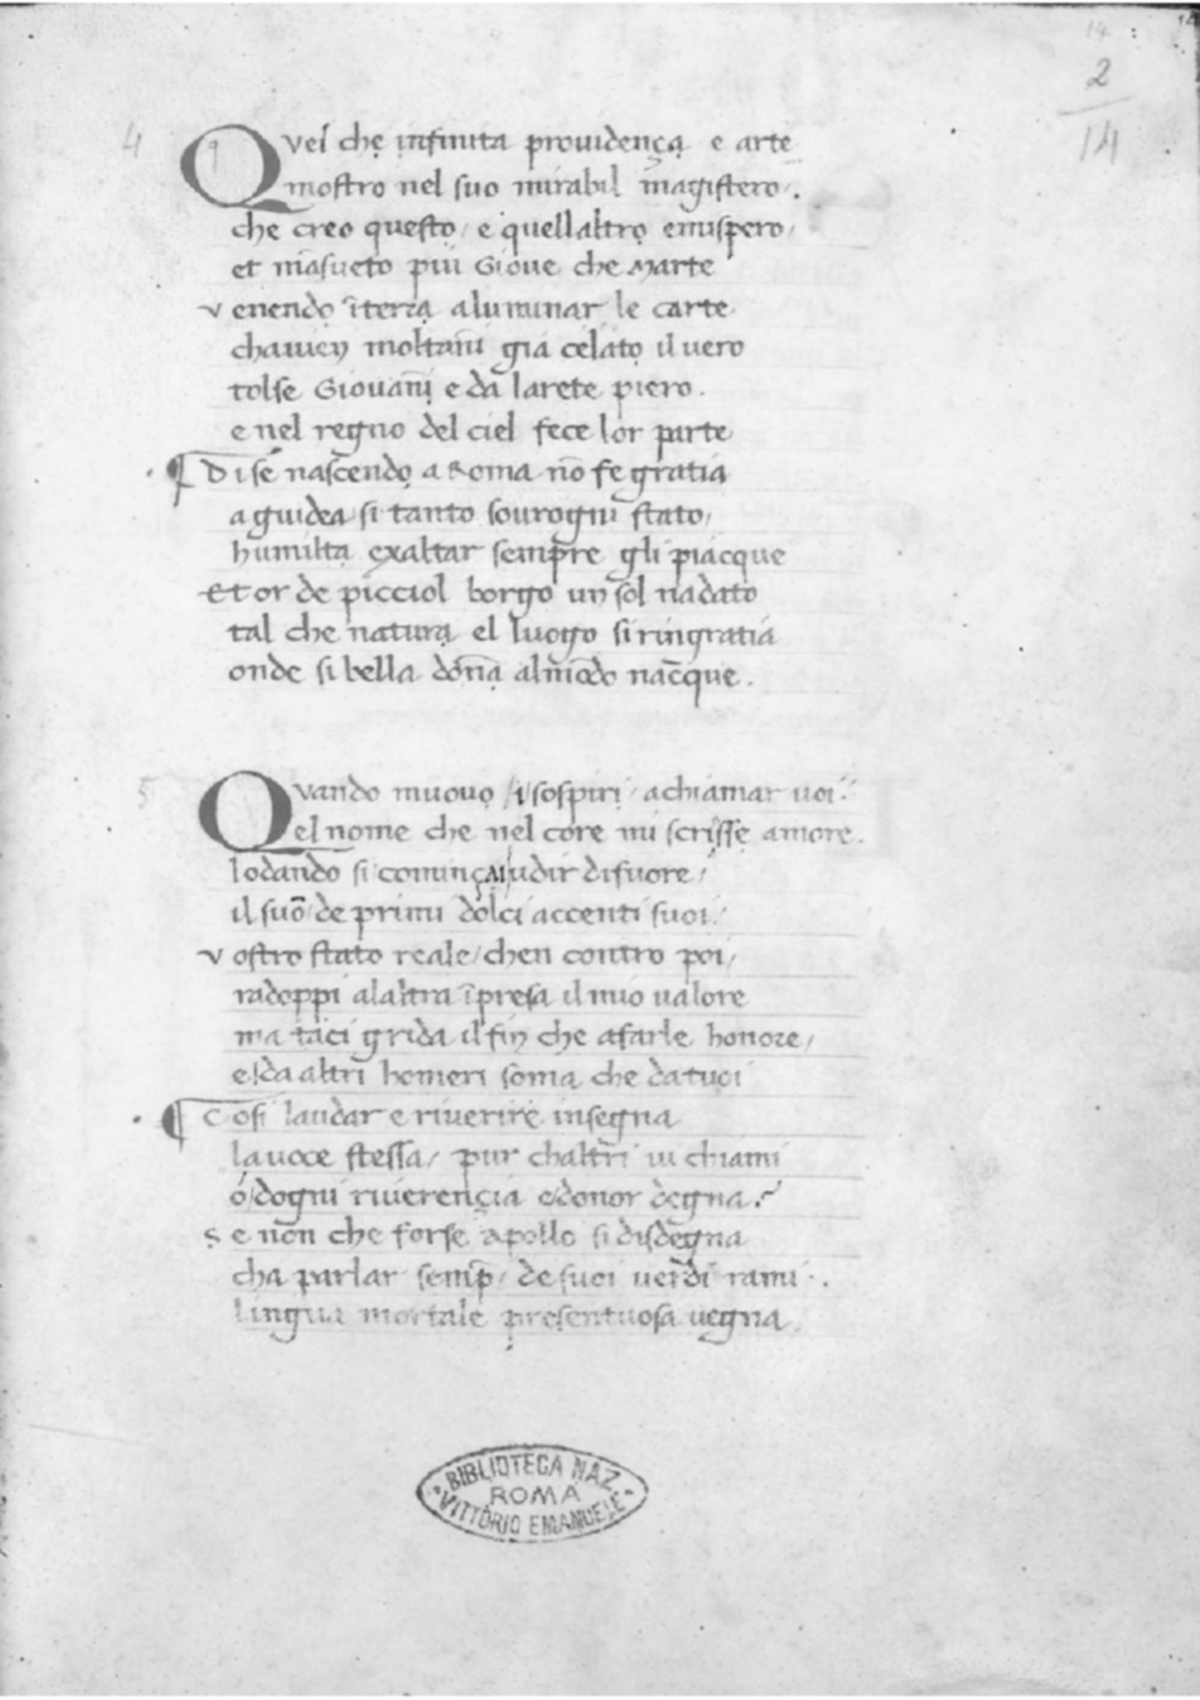 14
2
14
4
Quel che infinita prouidença e arte
mostro nel suo mirabil magistero.
che creo questo/ e quellaltro emispero/
et māsueto piu Gioue che Marte
venendo īterra aluminar le carte
chauien moltāni gia celato il uero
tolse Giouāni e da larete piero.
e nel regno del ciel fece lor parte
¶ Di se nascendo a Roma nō fe gratia
a guidea/ si tanto sourogni stato/
humilta exaltar sempre gli piacque
Et or de picciol borgo un sol nadato
tal che natura el luogo si ringratia
onde si bella dōna almōdo nacque.
5
Quando muouo /i/ sospiri/ achiamar uoi
el nome che nel core mi scrisse amore.
lodando si cominça udir difuore/
il suō/de primi dolci accenti suoi/
vostro stato reale/chen contro poi/
radoppi alaltra īpresa il mio ualore
ma taci grida il fin che afarle honore/
e/da altri homeri soma che datuoi
¶ Cosi laudar e riuerire insegna
lauoce stessa/ pur chaltri ui chiami
o/dogni riuerençia e/donor degna.
se non che forse apollo si disdegna
cha parlar semp̄/ de suoi uerdi rami.
lingua mortale presentuosa uegna.
BIBLIOTECA NAZ.
ROMA
VITTORIO EMANUELE